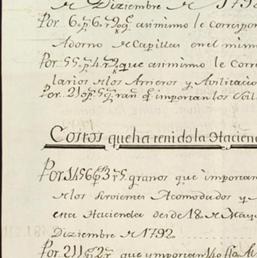 de Diziembre de 1792
Por 6,,p.s 6,,r.s 2,,g.s asimismo le correspo
Adorno de Capillas en el mism
Por 55,,p.s 4,,r.s que asimismo le Corre
larios de los Arrieros y
Por 21,,p.s 5,,gran.s q.e importan los
Costos que ha tenido la Hacien
Por 1456,,p.s 3,,r.s 5,,granos que importan
de los Sirvientes Acomodados y
esta Hacienda desde 18 de Mayo
Diziembre de 1792
Por 211,,p.s 2,,r.s que